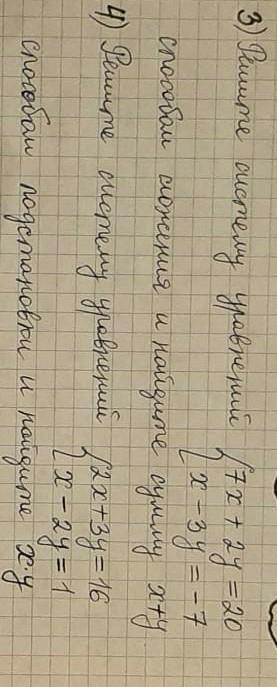 3) Решите систему уравнений {7x + 2y = 20
{x - 3y = -7
способом сложения и найдите сумму x+y
4) Решите систему уравнений {2x+3y=16
{x - 2y = 1
способом подстановки и найдите x·y